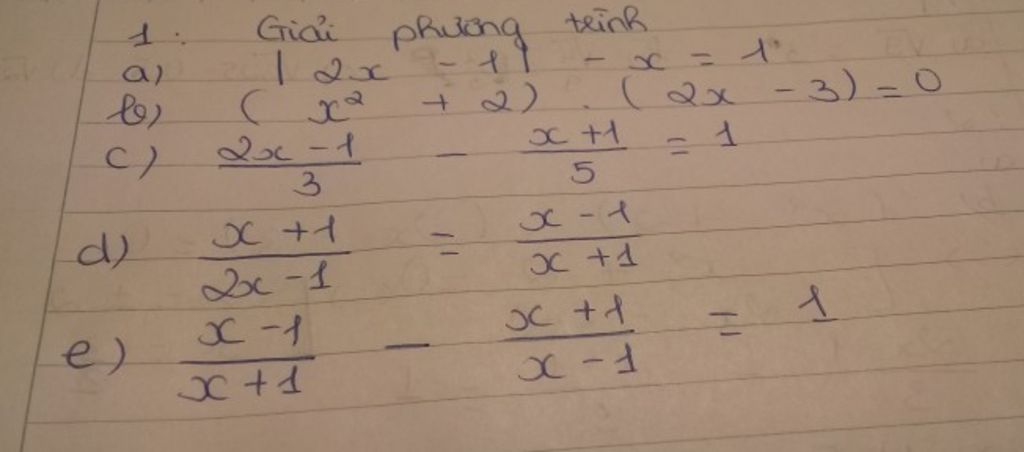 1. Giải phương trình
a) | 2x - 1| - x = 1
b) ( x² + 2) . ( 2x - 3) = 0
c) \frac{2x - 1}{3} - \frac{x + 1}{5} = 1
d) \frac{x + 1}{2x - 1} = \frac{x - 1}{x + 1}
e) \frac{x - 1}{x + 1} - \frac{x + 1}{x - 1} = 1